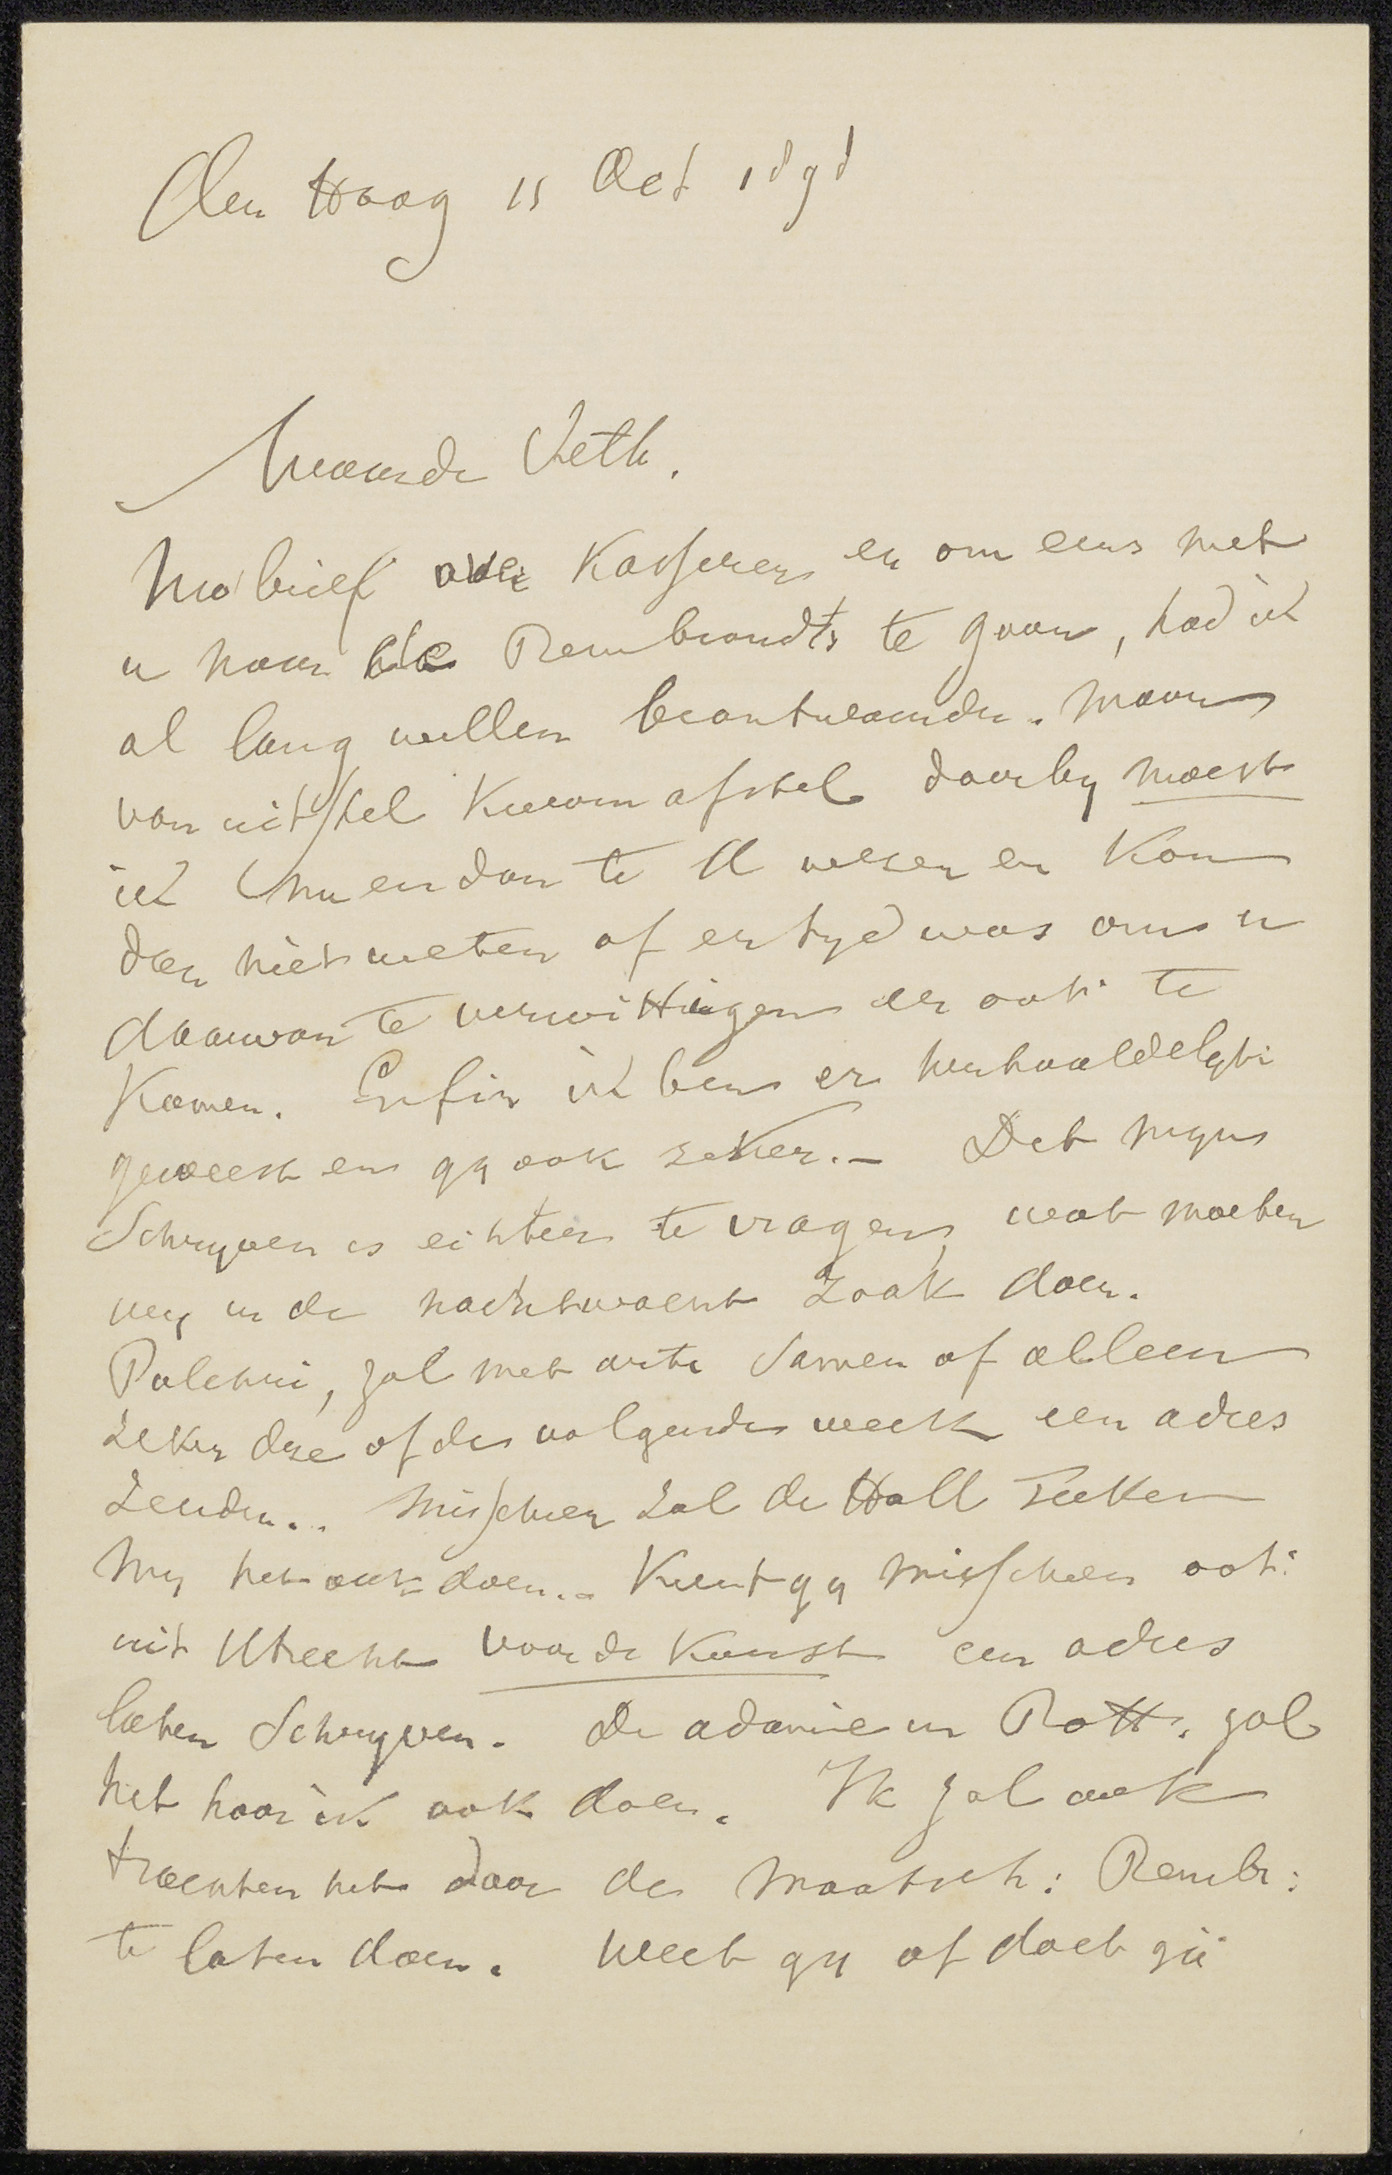 Den Haag 15 Oct 1898
Waarde Veth.
Uw brief over Kasseren en om eens met
u naar de Rembrandts te gaan, had ik
al lang willen beantwoorden. Maar
van uitstel kwam afstel daarby moest
ik nu en dan te A wesen en kon
dan niet weten of er tyd was om u
daarvan te verwittigen er ook te
komen. Enfin ik ben er herhaaldelyk
geweest en gy ook zeker. – Det myns
Schryven is echter te vragen, wat moeten
wy in de nachtwacht zaak doen.
Pulchri, zal met arti samen of alleen
zeker dese of de volgende week een adres
zenden.. Misschien zal de Hall
my het ook doen.. Kunt gy misschien ook
uit Utrecht voor de Kunst een adres
laten Schryven. De adamie in Rott. zal
het hoor ik ook doen. Ik zal ook
trachten het door de Maatsch: Rembr:
te laten doen. Weet gy of doet gij